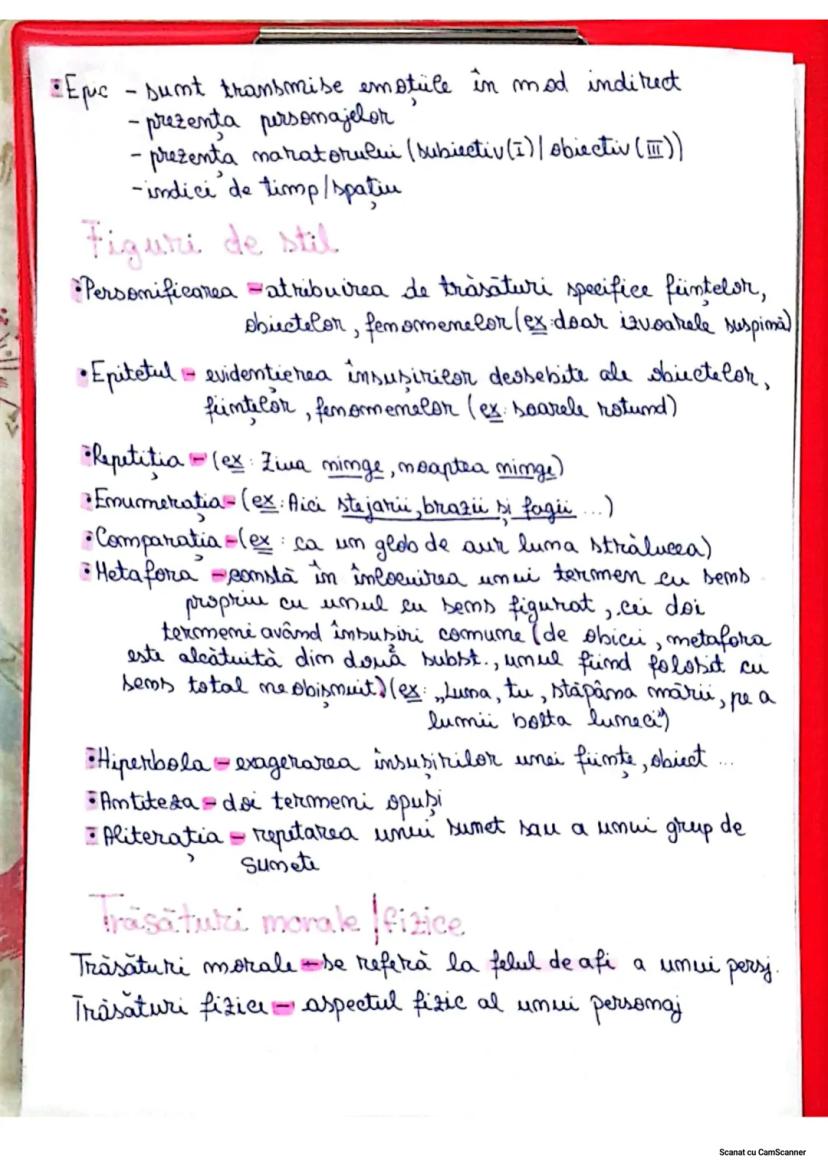 •Epic - sunt transmise emoțiile în mod indirect
- prezența personajelor
- prezența naratorului (subiectiv(I)|obiectiv(III))
-indici de timp/spațiu
Figuri de stil
•Personificarea - atribuirea de trăsături specifice ființelor,
obiectelor, fenomenelor (ex: doar izvoarele suspină)
•Epitetul - evidențierea însușirilor deosebite ale obiectelor,
ființelor, fenomenelor (ex: soarele rotund)
•Repetiția - (ex: Ziua ninge, noaptea ninge)
•Enumerația - (ex: Aici stejarii, brazii și fagii ...)
•Comparația - (ex: ca un glob de aur luna strălucea)
•Metafora - constă în înlocuirea unui termen cu sens
propriu cu unul cu sens figurat, cei doi
termeni având însușiri comune (de obicei, metafora
este alcătuită din două subst., unul fiind folosit cu
sens total neobișnuit) (ex: „Luna, tu, stăpâna mării, pe a
lumii bolta luneci")
•Hiperbola - exagerarea însușirilor unei ființe, obiect ...
•Antiteza - doi termeni opuși
•Aliterația - repetarea unui sunet sau a unui grup de
sunete
Trăsături morale|fizice
Trăsături morale - se referă la felul de a fi a unui persj.
Trăsături fizice - aspectul fizic al unui personaj
Scanat cu CamScanner